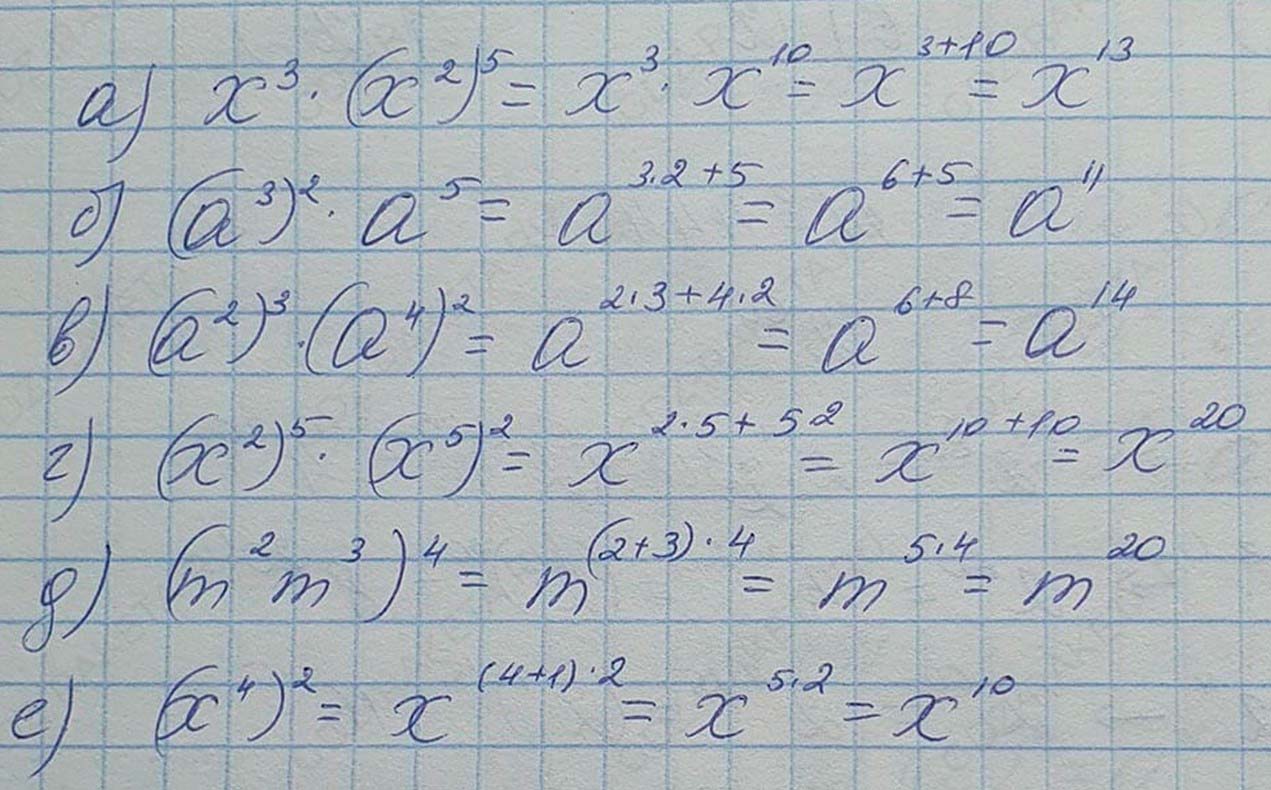 а) x³ · (x²)⁵ = x³ · x¹⁰ = x³⁺¹⁰ = x¹³
б) (a³)² · a⁵ = a³·²⁺⁵ = a⁶⁺⁵ = a¹¹
в) (a²)³ · (a⁴)² = a²·³⁺⁴·² = a⁶⁺⁸ = a¹⁴
г) (x²)⁵ · (x⁵)² = x²·⁵⁺⁵·² = x¹⁰⁺¹⁰ = x²⁰
д) (m²m³)⁴ = m⁽²⁺³⁾·⁴ = m⁵·⁴ = m²⁰
е) (x⁴)² = x⁽⁴⁺¹⁾·² = x⁵·² = x¹⁰